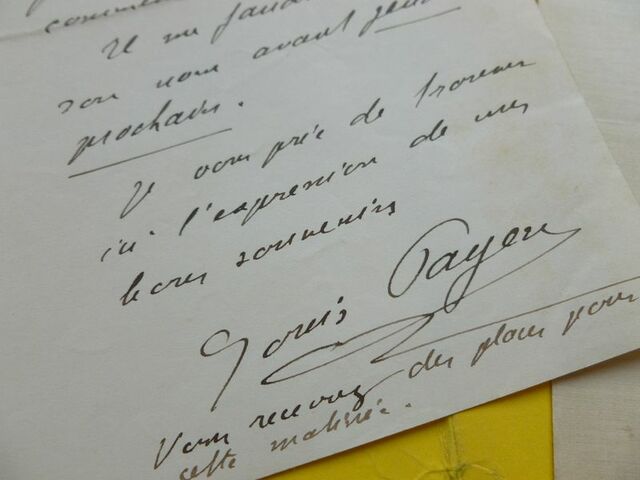 Il me faudr
son nom avant jeudi
prochain.
Je vous prie de trouver
ici l'expression de mes
bons souvenirs
Louis Payen
Vous recevrez des places pour
cette matinée.